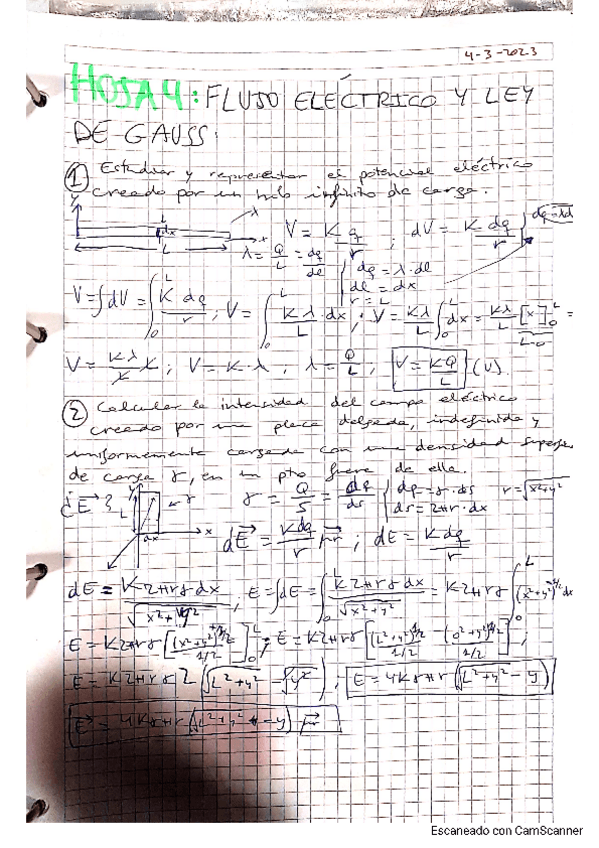 4-3-2023
HOJA 4: FLUJO ELÉCTRICO Y LEY
DE GAUSS.
① Estudiar y representar el potencial eléctrico
creado por un hilo infinito de carga.
y L dx λ x L
V = K q/r ; dV = K dq/r
λ = Q/L = dq/dl { dq = λ·dl
dl = dx
r = L
V = ∫dV = ∫₀ᴸ K dq/r ; V = ∫₀ᴸ Kλ/L · dx ; V = Kλ/L ∫₀ᴸ dx = Kλ/L [x]₀ᴸ =
L-0
V = Kλ/L L ; V = K·λ ; λ = Q/L ; V = KQ/L (V).
② Calcular la intensidad del campo eléctrico
creado por una placa delgada, indefinida y
uniformemente cargada con una densidad superf.
de carga γ, en un pto fuera de ella.
¿E⃗? L y γ x dx
γ = Q/S = dq/ds { dq = γ·ds
ds = 2πr·dx
r = √x²+y²
dE⃗ = Kdq/r μ⃗r ; dE = Kdq/r
dE = K2πrγdx/√x²+y² ; E = ∫dE = ∫₀ᴸ K2πrγdx/√x²+y² = K2πrγ ∫₀ᴸ (x²+y²)^-1/2 dx
E = K2πrγ [(x²+y²)^1/2/1/2]₀ᴸ ; E = K2πrγ [(L²+y²)^1/2/1/2 - (0²+y²)^1/2/1/2] ;
E = K2πrγ 2 (√L²+y² - √y²) ; E = 4Kγπr (√L²+y² - y)
E⃗ = 4Kγπr (√L²+y² - y) μ⃗r
Escaneado con CamScanner